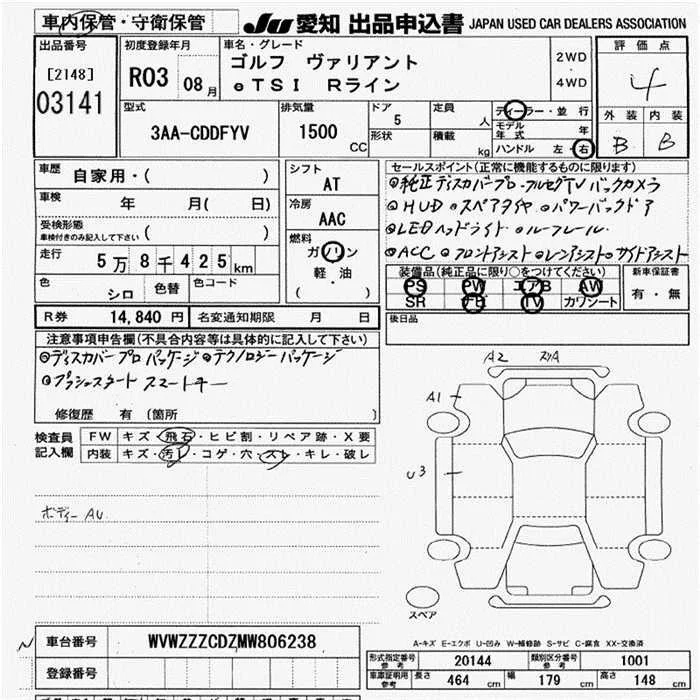 車内保管・守衛保管
JU 愛知 出品申込書 JAPAN USED CAR DEALERS ASSOCIATION
出品番号
[2148]
03141
初度登録年月
R03 08月
車名・グレード
ゴルフ ヴァリアント
eTSI Rライン
2WD
・
4WD
評価点
4
外装 内装
B B
型式
3AA-CDDFYV
排気量
1500 CC
ドア 5
形状
定員 人
積載 kg
ディーラー・並行
モデル年式 年
ハンドル 左・右
車歴 自家用・( )
車検 年 月( 日)
受検形態
車検付きのみ記入して下さい ( )
走行 5万8千425km
色 シロ 色替 色コード
シフト
AT
冷房
AAC
燃料
ガソリン
軽・油
( )
セールスポイント(正常に機能するものに限ります)
純正ディスカバープロ・フルセグTV バックカメラ
HUD スペアタイヤ パワーバックドア
LEDヘッドライト ルーフレール
ACC フロントアシスト レーンアシスト サイドアシスト
装備品(純正品に限り○をつけてください)
PS PW エアB AW
SR TV カワシート
新車保証書
有・無
R券 14,840円 名変通知期限 月 日
後日品
注意事項申告欄(不具合内容等は具体的に記入して下さい)
ディスカバープロパッケージ テクノロジーパッケージ
プッシュスタート スマートキー
修復歴 有 (箇所 )
検査員
記入欄
FW キズ・飛石・ヒビ割・リペア跡・X要
内装 キズ・汚レ・コゲ・穴・スレ・キレ・破レ
ボディー AU
A2
A1
U3
スペア
A-キズ E-エクボ U-凹み W-補修跡 S-サビ C-腐食 XX-交換済
車台番号 WVWZZZCDZMW806238
登録番号
形式指定番号 参考 20144 類別区分番号 参考 1001
車庫証明用 参考 長さ 464 cm 幅 179 cm 高さ 148 cm